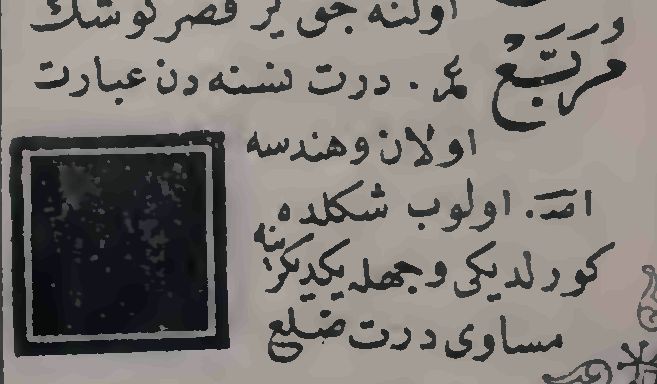 اولنه جق بر قصر کوشك
مربع عمر. درت نسنه دن عبارت
اولان وهندسه
امد. اولوب شکلده
کورلدیکی وجهله یکدیکرینه
مساوی درت ضلع